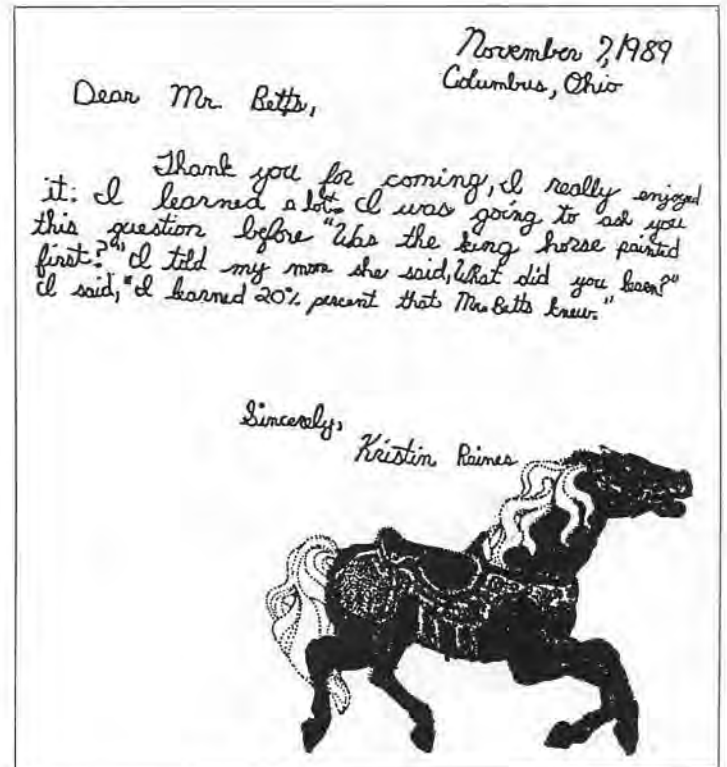 November 7, 1989
Columbus, Ohio
Dear Mr. Betts,
Thank you for coming, I really enjoyed
it. I learned a lot. I was going to ask you
this question before "Was the king horse painted
first?" I told my mom she said, What did you learn?"
I said, "I learned 20% percent that Mr. Betts knew."
Sincerely,
Kristin Raines